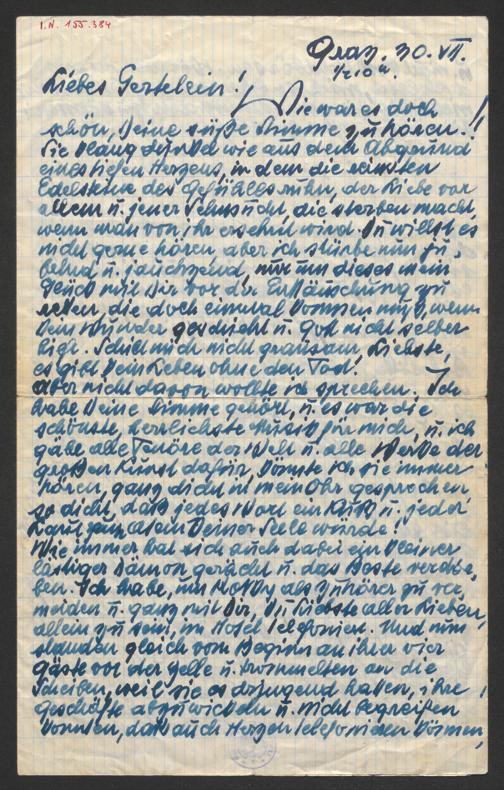 I.N. 155.384
Graz, 30. VII.
1/2 10 h.
Liebes Gerstelein!
Wie war es doch
schön, Deine süße Stimme zu hören!!
Sie klang dunkel wie aus dem Abgrund
eines tiefen Herzens, in dem die reinsten
Edelsteine des Gefühls ruhn, der Liebe vor
allem u. jener Sehnsucht, die sterben macht,
wenn man von ihr ersehnt wird. Du willst es
nicht gerne hören, aber ich stürbe nun ju-
belnd u. jauchzend, nur um dieses mein
Glück mit Dir vor der Enttäuschung zu
retten, die doch einmal kommen muß, wenn
kein Wunder geschieht u. Gott nicht selber
hilft. Schilt mich nicht grausam, Liebste,
es gibt kein Leben ohne den Tod!
Aber nicht davon wollte ich sprechen. Ich
habe Deine Stimme gehört, u. es war die
schönste, herrlichste Musik für mich, u. ich
gäbe alle Tenöre der Welt u. alle Werke der
großen Kunst dafür, könnte ich sie immer
hören, ganz dicht in mein Ohr gesprochen,
so dicht, daß jedes Wort ein Kuß u. jeder
Laut zum Atem Deiner Seele würde!
Wie immer hat sich auch dabei ein kleiner
lästiger Dämon gerächt u. das Beste verdor-
ben. Ich habe, um als Zuhörer zu ver-
meiden u. ganz mit Dir, Du Liebste aller Lieben,
allein zu sein, im Hotel telefoniert. Und nun
standen gleich vom Beginn an ihrer vier
Gäste vor der Zelle u. trommelten an die
Scheiben, weil sie es dringend hatten, ihre
Geschäfte abzuwickeln u. nicht begreifen
konnten, daß auch Herzen telefonieren können,